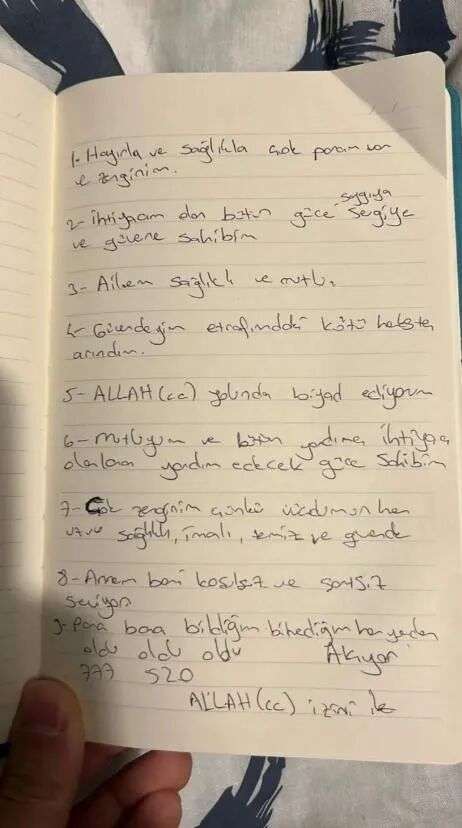 1- Hayırla ve sağlıkla çok param var
ve zenginim.
2- ihtiyacım dan bütün güce saygıya sevgiye
ve güvene sahibim
3- Ailem sağlıklı ve mutlu.
4- Güvendeyim etrafımdaki kötü
arındım.
5- ALLAH(cc) yolunda ediyorum
6- mutluyum ve bütün yardıma ihtiyacı
olanlara yardım edecek güce sahibim
7- Çok zenginim çünkü vücudumun her
sağlıklı, temiz ve güvende
8- Annem beni koşulsuz ve şartsız
seviyor
9- Para bana bildiğim bilmediğim her yerden
oldu oldu oldu Akıyor
777 520
ALLAH(cc) izni ile